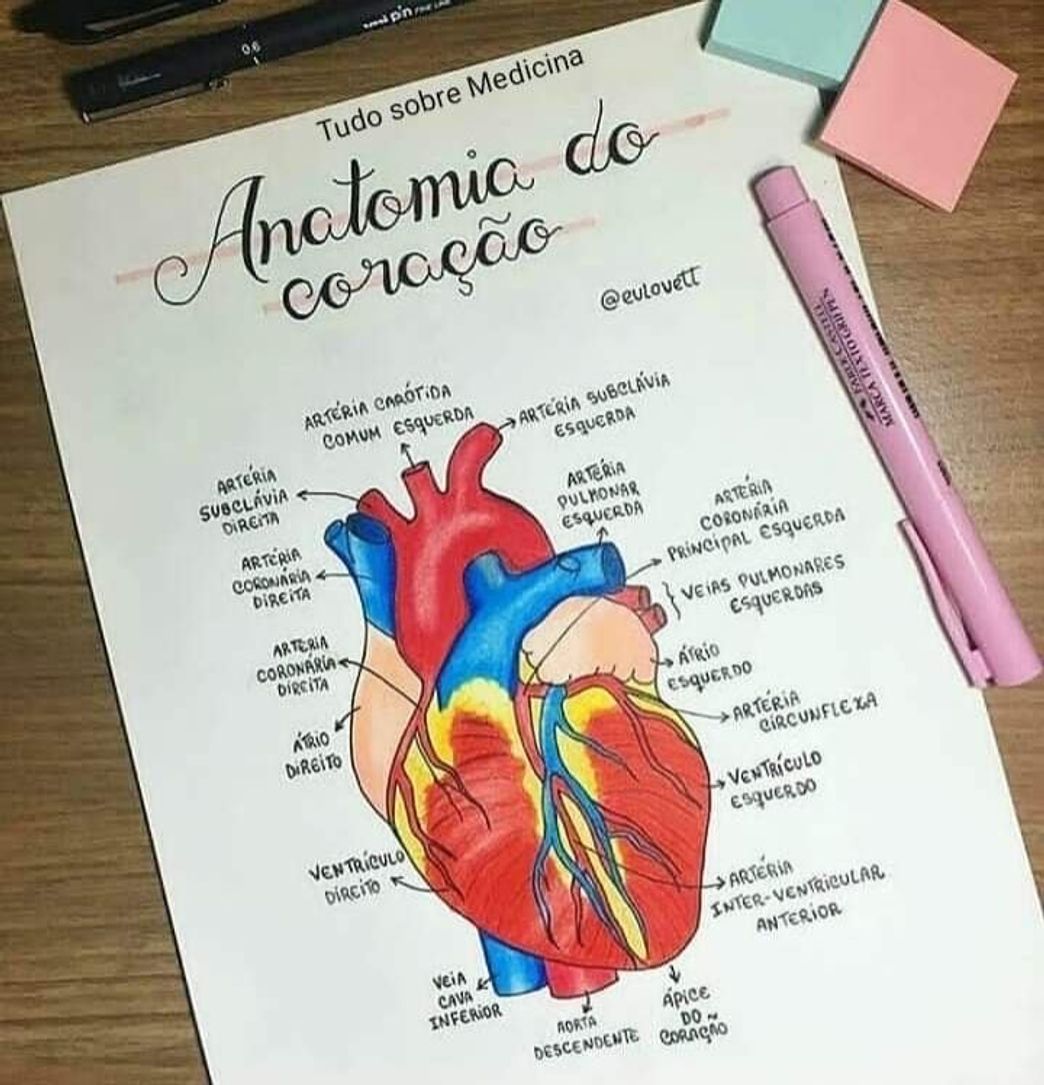 uni pin FINE LINE
0.6
Tudo sobre Medicina
Anatomia do
coração
@eulovett
FABER-CASTELL
MARCA TEXTO GRIFPEN
ARTÉRIA CARÓTIDA
COMUM ESQUERDA
ARTÉRIA SUBCLÁVIA
ESQUERDA
ARTÉRIA
SUBCLÁVIA
DIREITA
ARTÉRIA
PULMONAR
ESQUERDA
ARTÉRIA
CORONÁRIA
PRINCIPAL ESQUERDA
ARTÉRIA
CORONÁRIA
DIREITA
VEIAS PULMONARES
ESQUERDAS
ARTERIA
CORONÁRIA
DIREITA
ÁTRIO
ESQUERDO
ARTÉRIA
CIRCUNFLEXA
ÁTRIO
DIREITO
VENTRÍCULO
ESQUERDO
VENTRÍCULO
DIREITO
ARTÉRIA
INTER-VENTRICULAR
ANTERIOR
VEIA
CAVA
INFERIOR
AORTA
DESCENDENTE
ÁPICE
DO
CORAÇÃO